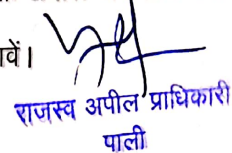 वें।
राजस्व अपील प्राधिकारी
पाली